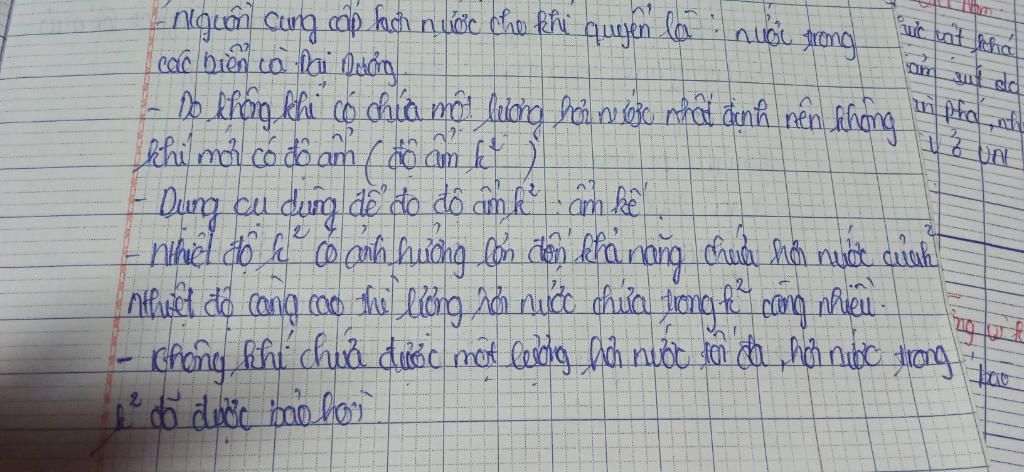 - Nguồn cung cấp hơi nước cho khí quyển là : nước trong
các biển và Đại Dương.
- Do không khí có chứa một lượng hơi nước nhất định nên không
khí mới có độ ẩm ( độ ẩm k² )
- Dụng cụ dùng để đo độ ẩm k² : ẩm kế.
- Nhiệt độ k² có ảnh hưởng lớn đến khả năng chứa hơi nước của k²
Nhiệt độ càng cao thì lượng hơi nước chứa trong k² càng nhiều.
- Không khí chứa được một lượng hơi nước tối đa, hơi nước trong
k² đó được bảo hoà